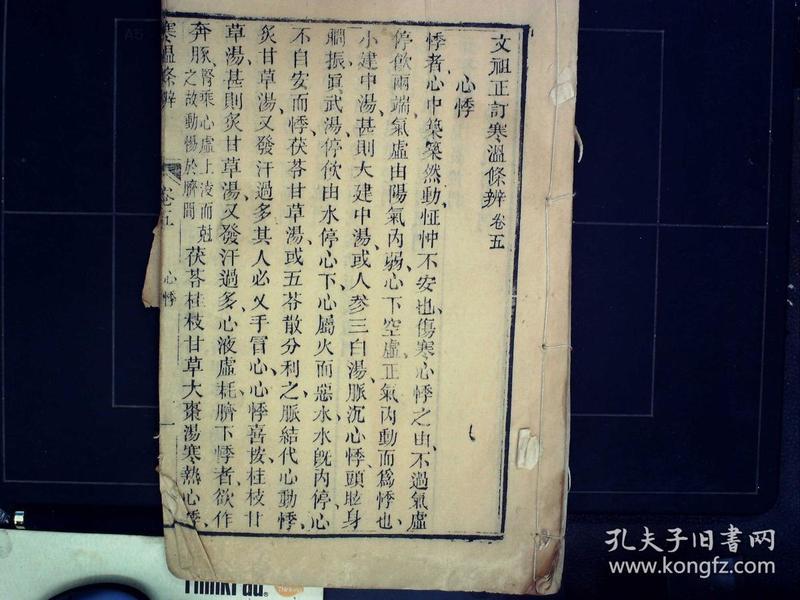 文祖正訂寒溫條辨卷五
心悸
悸者、心中築築然動、怔忡不安也、傷寒心悸之由、不過氣虛
停飲兩端、氣虛由陽氣內弱、心下空虛、正氣內動而爲悸也、
小建中湯、甚則大建中湯、或人參三白湯、脈沉心悸、頭眩身
瞤振、眞武湯、停飲由水停心下、心屬火而惡水、水旣內停、心
不自安而悸、茯苓甘草湯、或五苓散分利之、脈結代、心動悸、
炙甘草湯、又發汗過多、其人必叉手冒心、心悸喜按、桂枝甘
草湯、甚則炙甘草湯、又發汗過多、心液虛耗、臍下悸者、欲作
奔豚、腎乘心虛上凌而尅之、故動惕於臍間茯苓桂枝甘草大棗湯、寒熱心悸、
寒溫條辨 卷五 心悸 一
ThinkPad®
孔夫子旧书网
www.kongfz.com